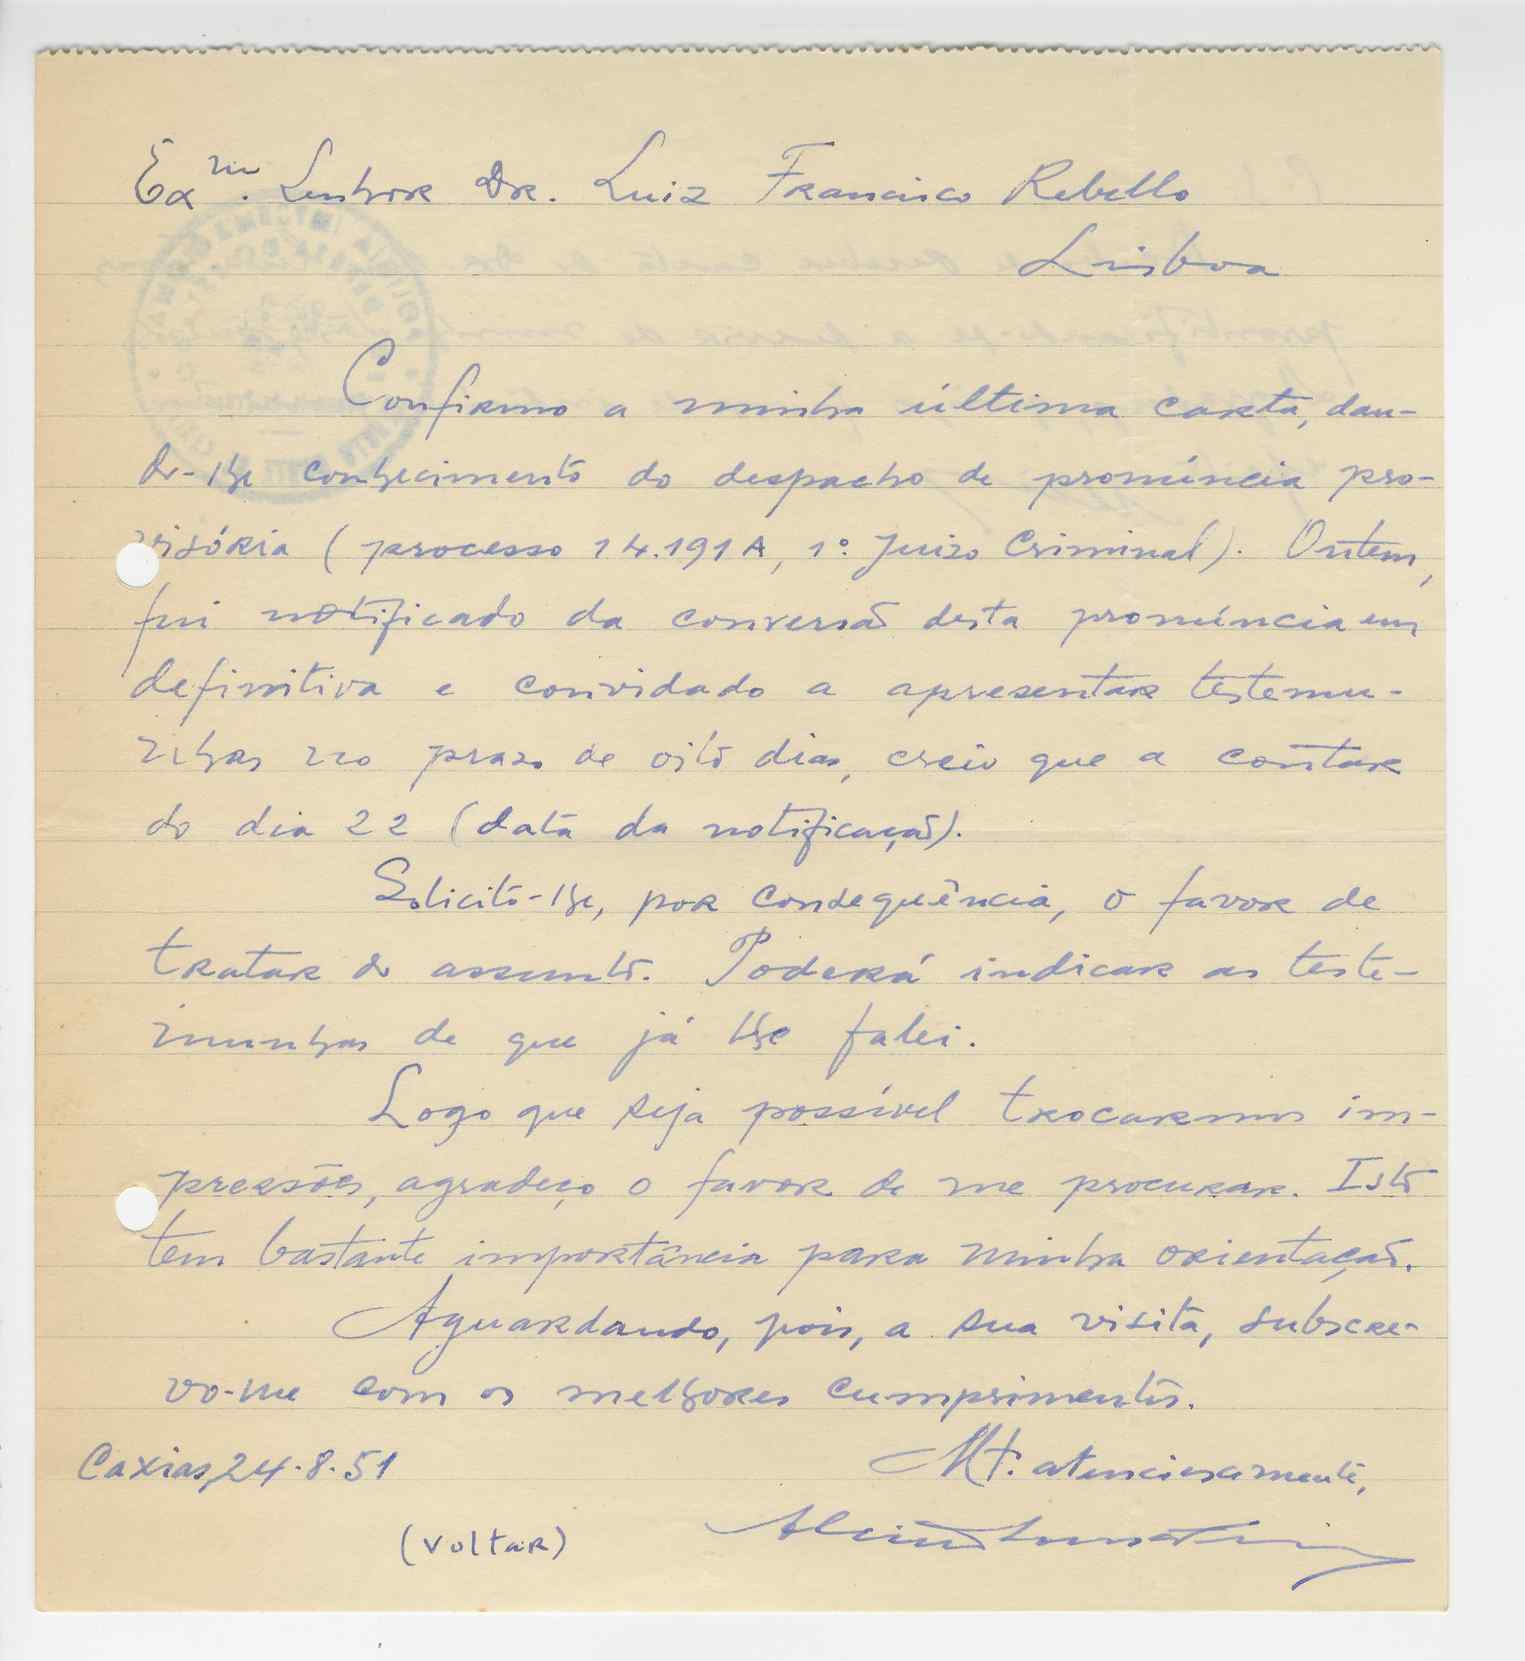 Exm. Senhor Dr. Luiz Francisco Rebello
Lisboa
Confirmo a minha última carta, dan-
do-lhe conhecimento do despacho de pronúncia pro-
visória (processo 14.191 A, 1º. Juizo Criminal). Ontem,
fui notificado da conversão desta pronúncia em
definitiva e convidado a apresentar testemu-
nhas no prazo de oito dias, creio que a contar
do dia 22 (data da notificação).
Solicito-lhe, por consequência, o favor de
tratar do assunto. Poderá indicar as teste-
munhas de que já lhe falei.
Logo que seja possível trocarmos im-
pressões, agradeço o favor de me procurar. Isto
tem bastante importância para minha orientação.
Aguardando, pois, a sua visita, subscre-
vo-me com os melhores cumprimentos.
Caxias, 24.8.51
Mt. atenciosamente,
(voltar)